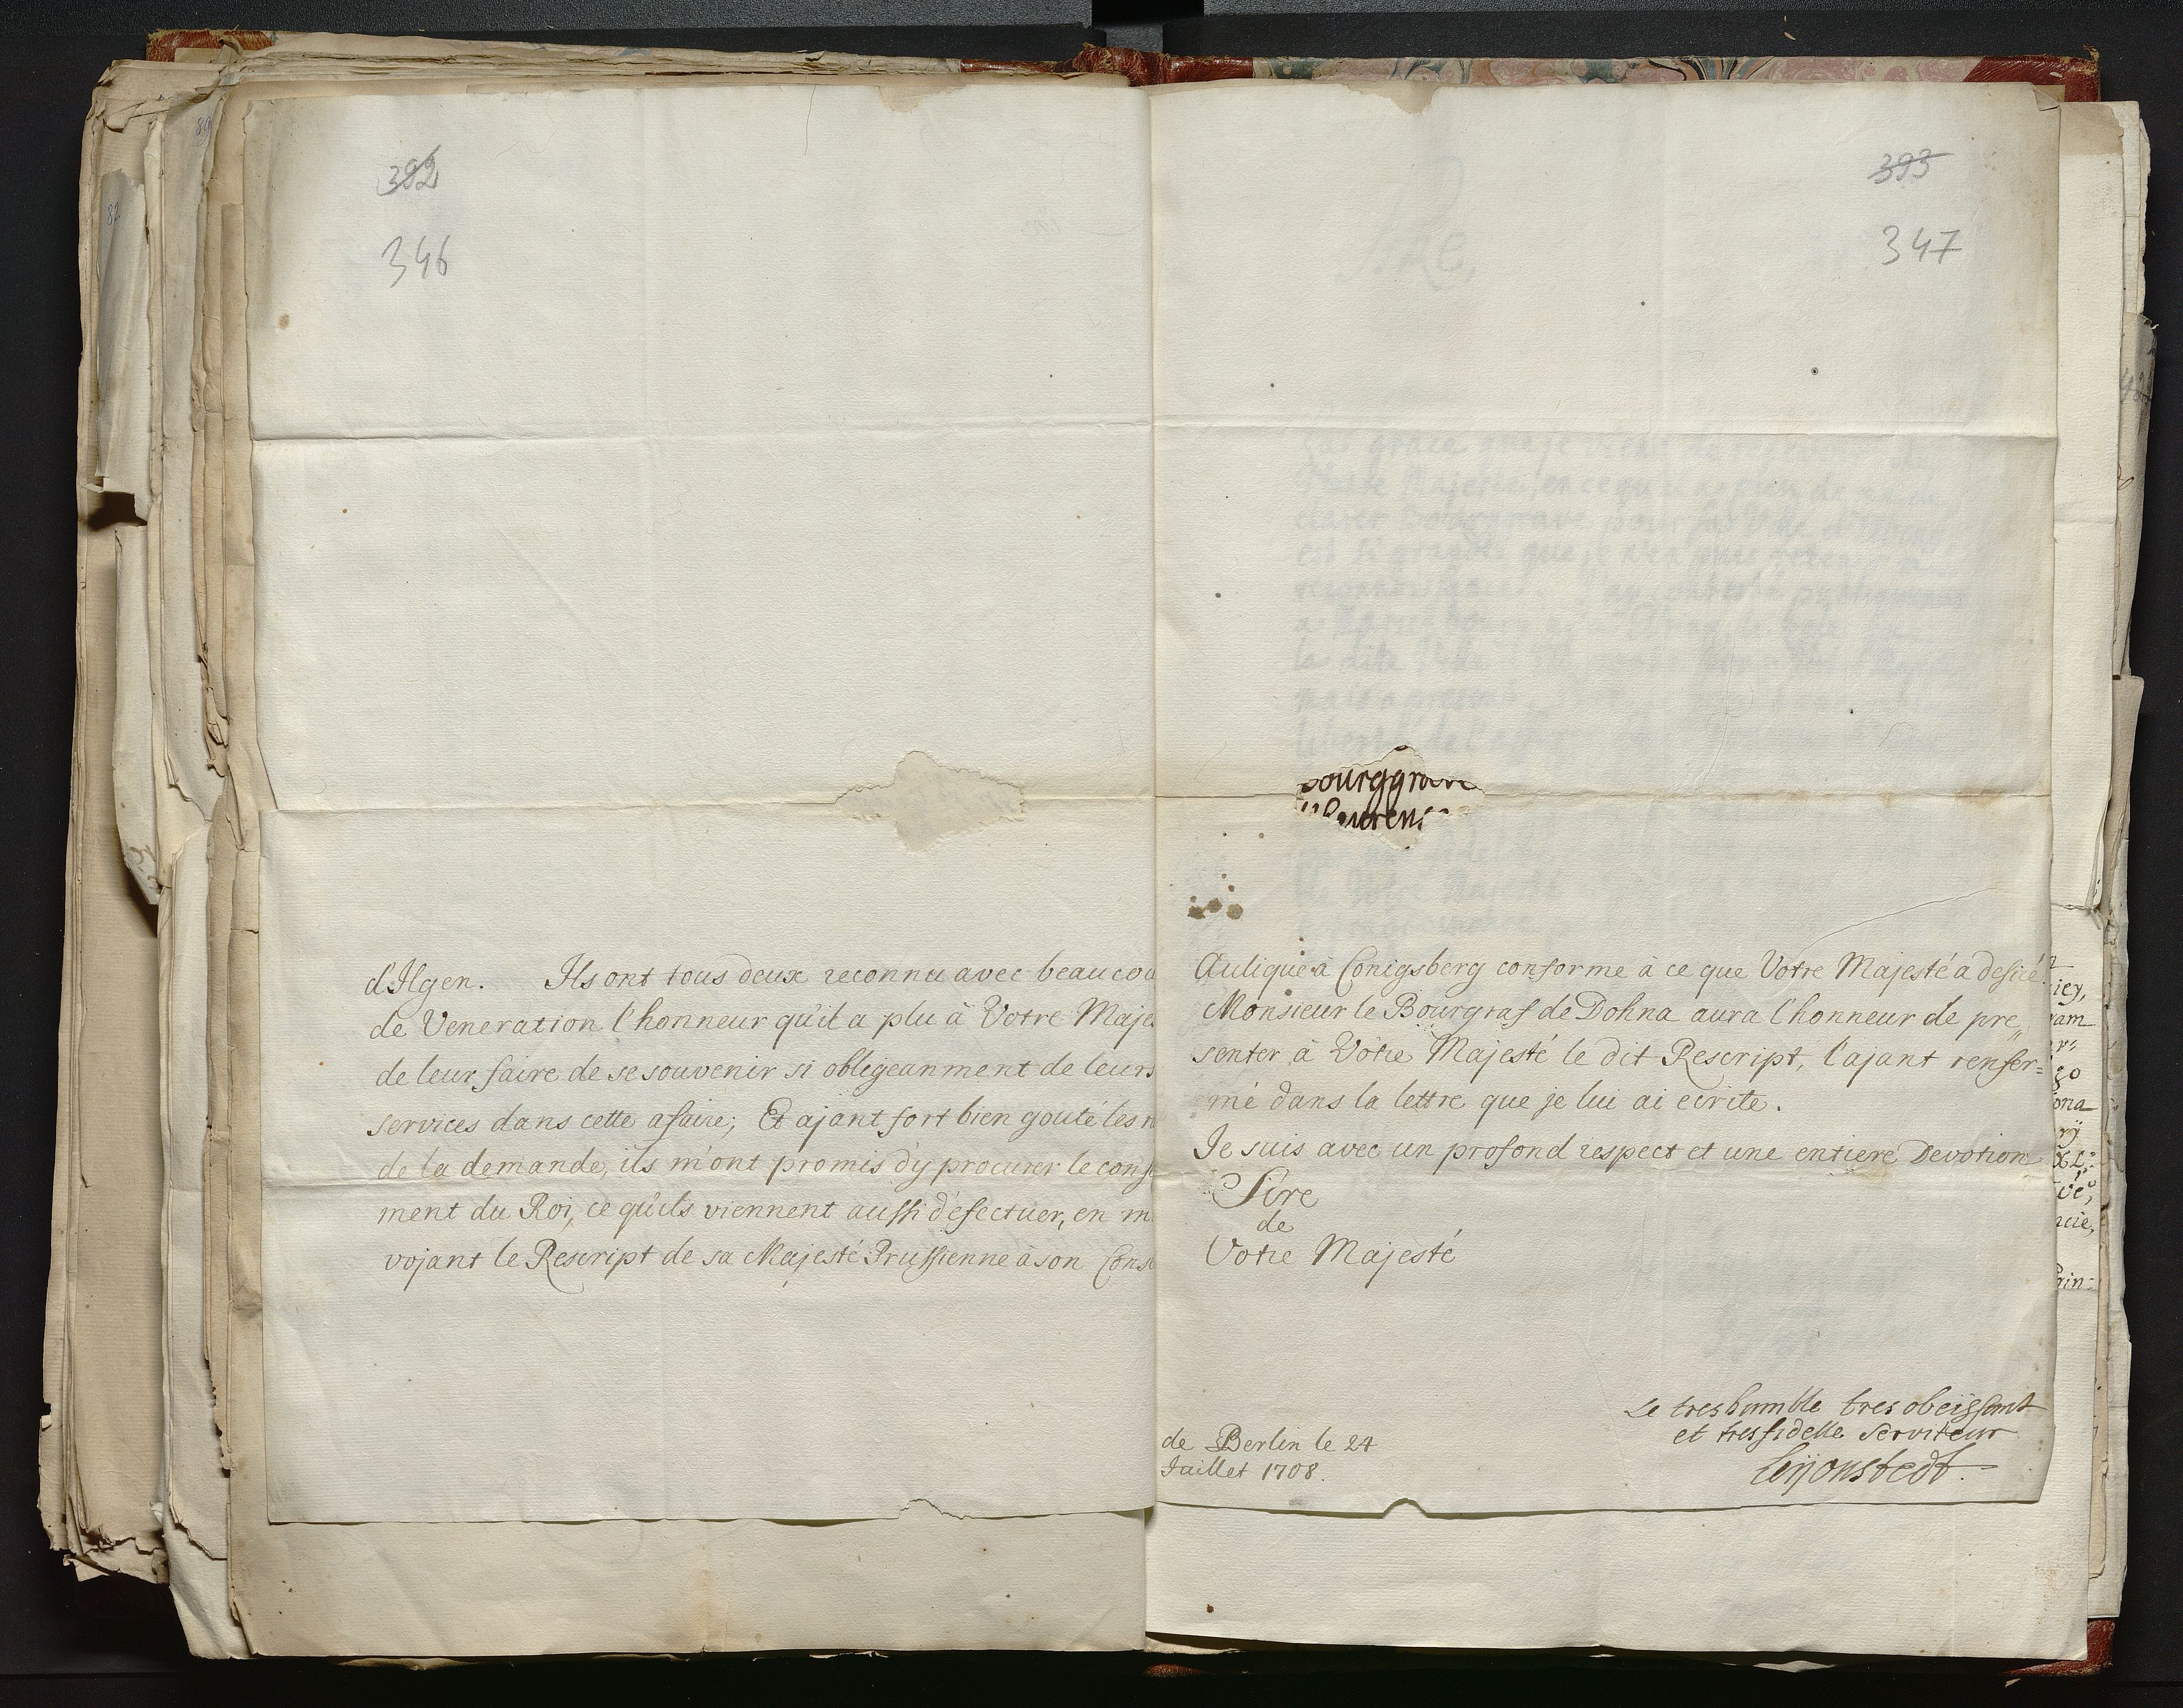 392
346
d'Ilgen. Ils ont tous deux reconnu avec beaucou
de Veneration l'honneur qu'il a plu à Votre Maje
de leur faire de se souvenir si obligeanment de leurs
services dans cette afaire; Et ajant fort bien gouté les
de la demande, ils m'ont promis d'y procurer le cons
ment du Roi, ce qu'ils viennent aussi d'efectuer, en m
vojant le Rescript de sa Majesté Prussienne à son Cons
393
347
bourggrave
Aulique à Conigsberg conforme à ce que Votre Majesté a desiré
Monsieur le Bourgraf de Dohna aura l'honneur de pre„
senter à Votre Majesté le dit Rescript, l'ajant renfer=
mé dans la lettre que je lui ai ecrite.
Je suis avec un profond respect et une entiere Devotion
Sire
de
Votre Majesté
Le tres humble tres obeissant
et tres fidelle Serviteur
Leijonstedt.
de Berlin le 24
Juillet 1708.